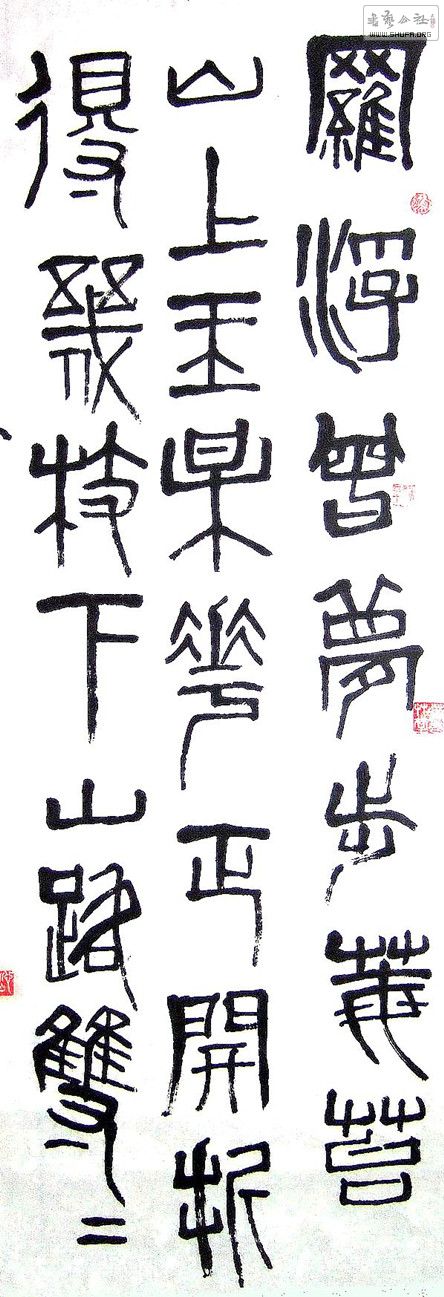 書藝公社
WWW.SHUFA.ORG
羅浮曾夢步莓苔
山上玉梅花正開折
得幾枝下山路雙二